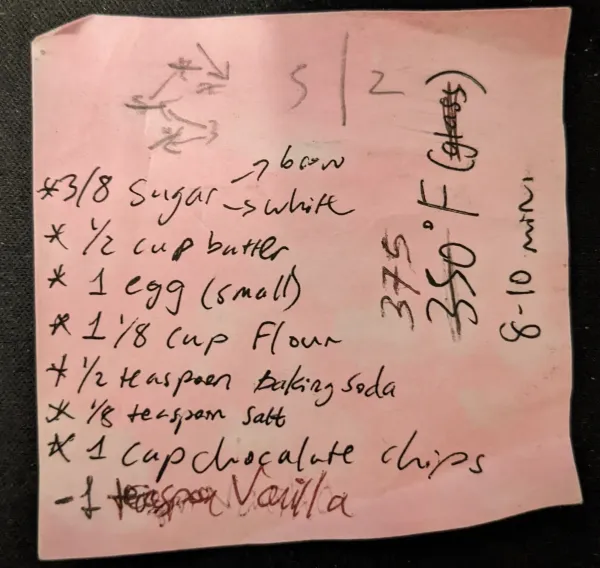 5 | 2
→ brow
*3/8 Sugar → white
* 1/2 cup butter
* 1 egg (small)
* 1 1/8 cup Flour
* 1/2 teaspoon baking soda
* 1/8 teaspoon salt
* 1 cup chocolate chips
- 1 teaspoon Vanilla
375
350°F (glass)
8-10 min.